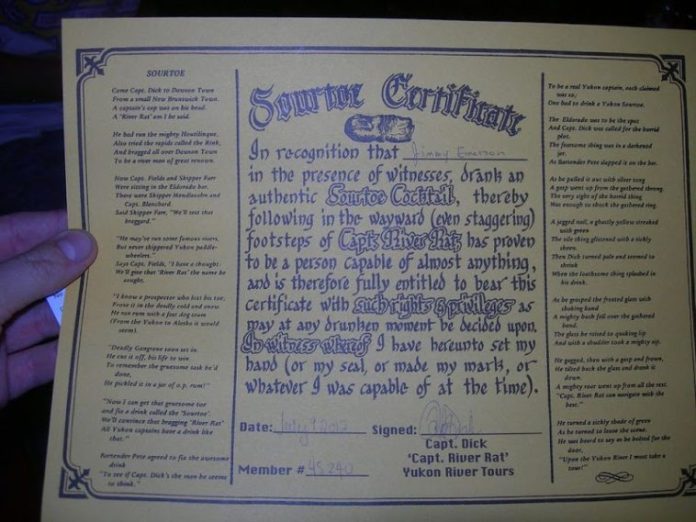 SOURTOE
Came Capt. Dick to Dawson Town
From a small New Brunswick Town.
A captain's cap was on his head.
A 'River Rat' am I he said.
He had run the mighty Hootilinqua,
Also tried the rapids called the Rink,
And bragged all over Dawson Town
To be a river man of great renown.
Now Capt. Fields and Skipper Farr
Were sitting in the Eldorado bar.
There were Mendelsohn and
Capt. Blanchard
Said Skipper Farr, "We'll test that
braggard."
"He may've run some famous rivers,
But never skippered Yukon paddle-
wheelers."
Says Capt. Fields, "I have a thought.
We'll give that 'River Rat' the name he
sought.
"I know a prospector who lost his toe,
Froze it in the deadly cold and snow.
He ran rum with a fast dog team
(From the Yukon to Alaska it would
seem).
"Deadly Gangrene soon set in.
He cut it off, his life to win.
To remember the gruesome task he'd
done,
He pickled it in a jar of o.p. rum!"
"Now I can get that gruesome toe
and fix a drink called the 'Sourtoe'.
We'll convince that bragging 'River Rat'
All Yukon captains have a drink like
that."
Bartender Pete agreed to fix the awesome
drink
"To see if Capt. Dick's the man he seems
to think."
Sourtoe Certificate
In recognition that Jimmy Emerson
in the presence of witnesses, drank an
authentic Sourtoe Cocktail, thereby
following in the wayward (even staggering)
footsteps of Capt. River Rat, has proven
to be a person capable of almost anything,
and is therefore fully entitled to bear this
certificate with such rights & privileges as
may at any drunken moment be decided upon.
In witness whereof I have hereunto set my
hand (or my seal, or made my mark, or
whatever I was capable of at the time).
Date: July 9 2012 Signed:
Capt. Dick
Member # 45240 'Capt. River Rat'
Yukon River Tours
To be a real Yukon captain, each claimed
was so,
One had to drink a Yukon Sourtoe.
The Eldorado was to be the spot
And Capt. Dick was called for the horrid
plot.
The fearsome thing was in a darkened
jar.
As Bartender Pete slapped it on the bar.
As he pulled it out with silver tong
A gasp went up from the gathered throng.
The very sight of the horrid thing
Was enough to shock the gathered ring.
A jagged nail, a ghastly yellow streaked
with green
The vile thing glistened with a sickly
sheen.
Then Dick turned pale and seemed to
shrink
When the loathsome thing splashed in
his drink.
As he grasped the frosted glass with
shaking hand
A mighty hush fell over the gathered
band.
The glass he raised to quaking lip
And with a shudder took a mighty sip.
He gagged, then with a gasp and frown,
He tilted back the glass and drank it
down.
A mighty roar went up from all the rest.
"Capt. River Rat can navigate with the
best."
He turned a sickly shade of green
As he turned to leave the scene.
He was heard to say as he bolted for the
door,
"Upon the Yukon River I must take a
tour!"